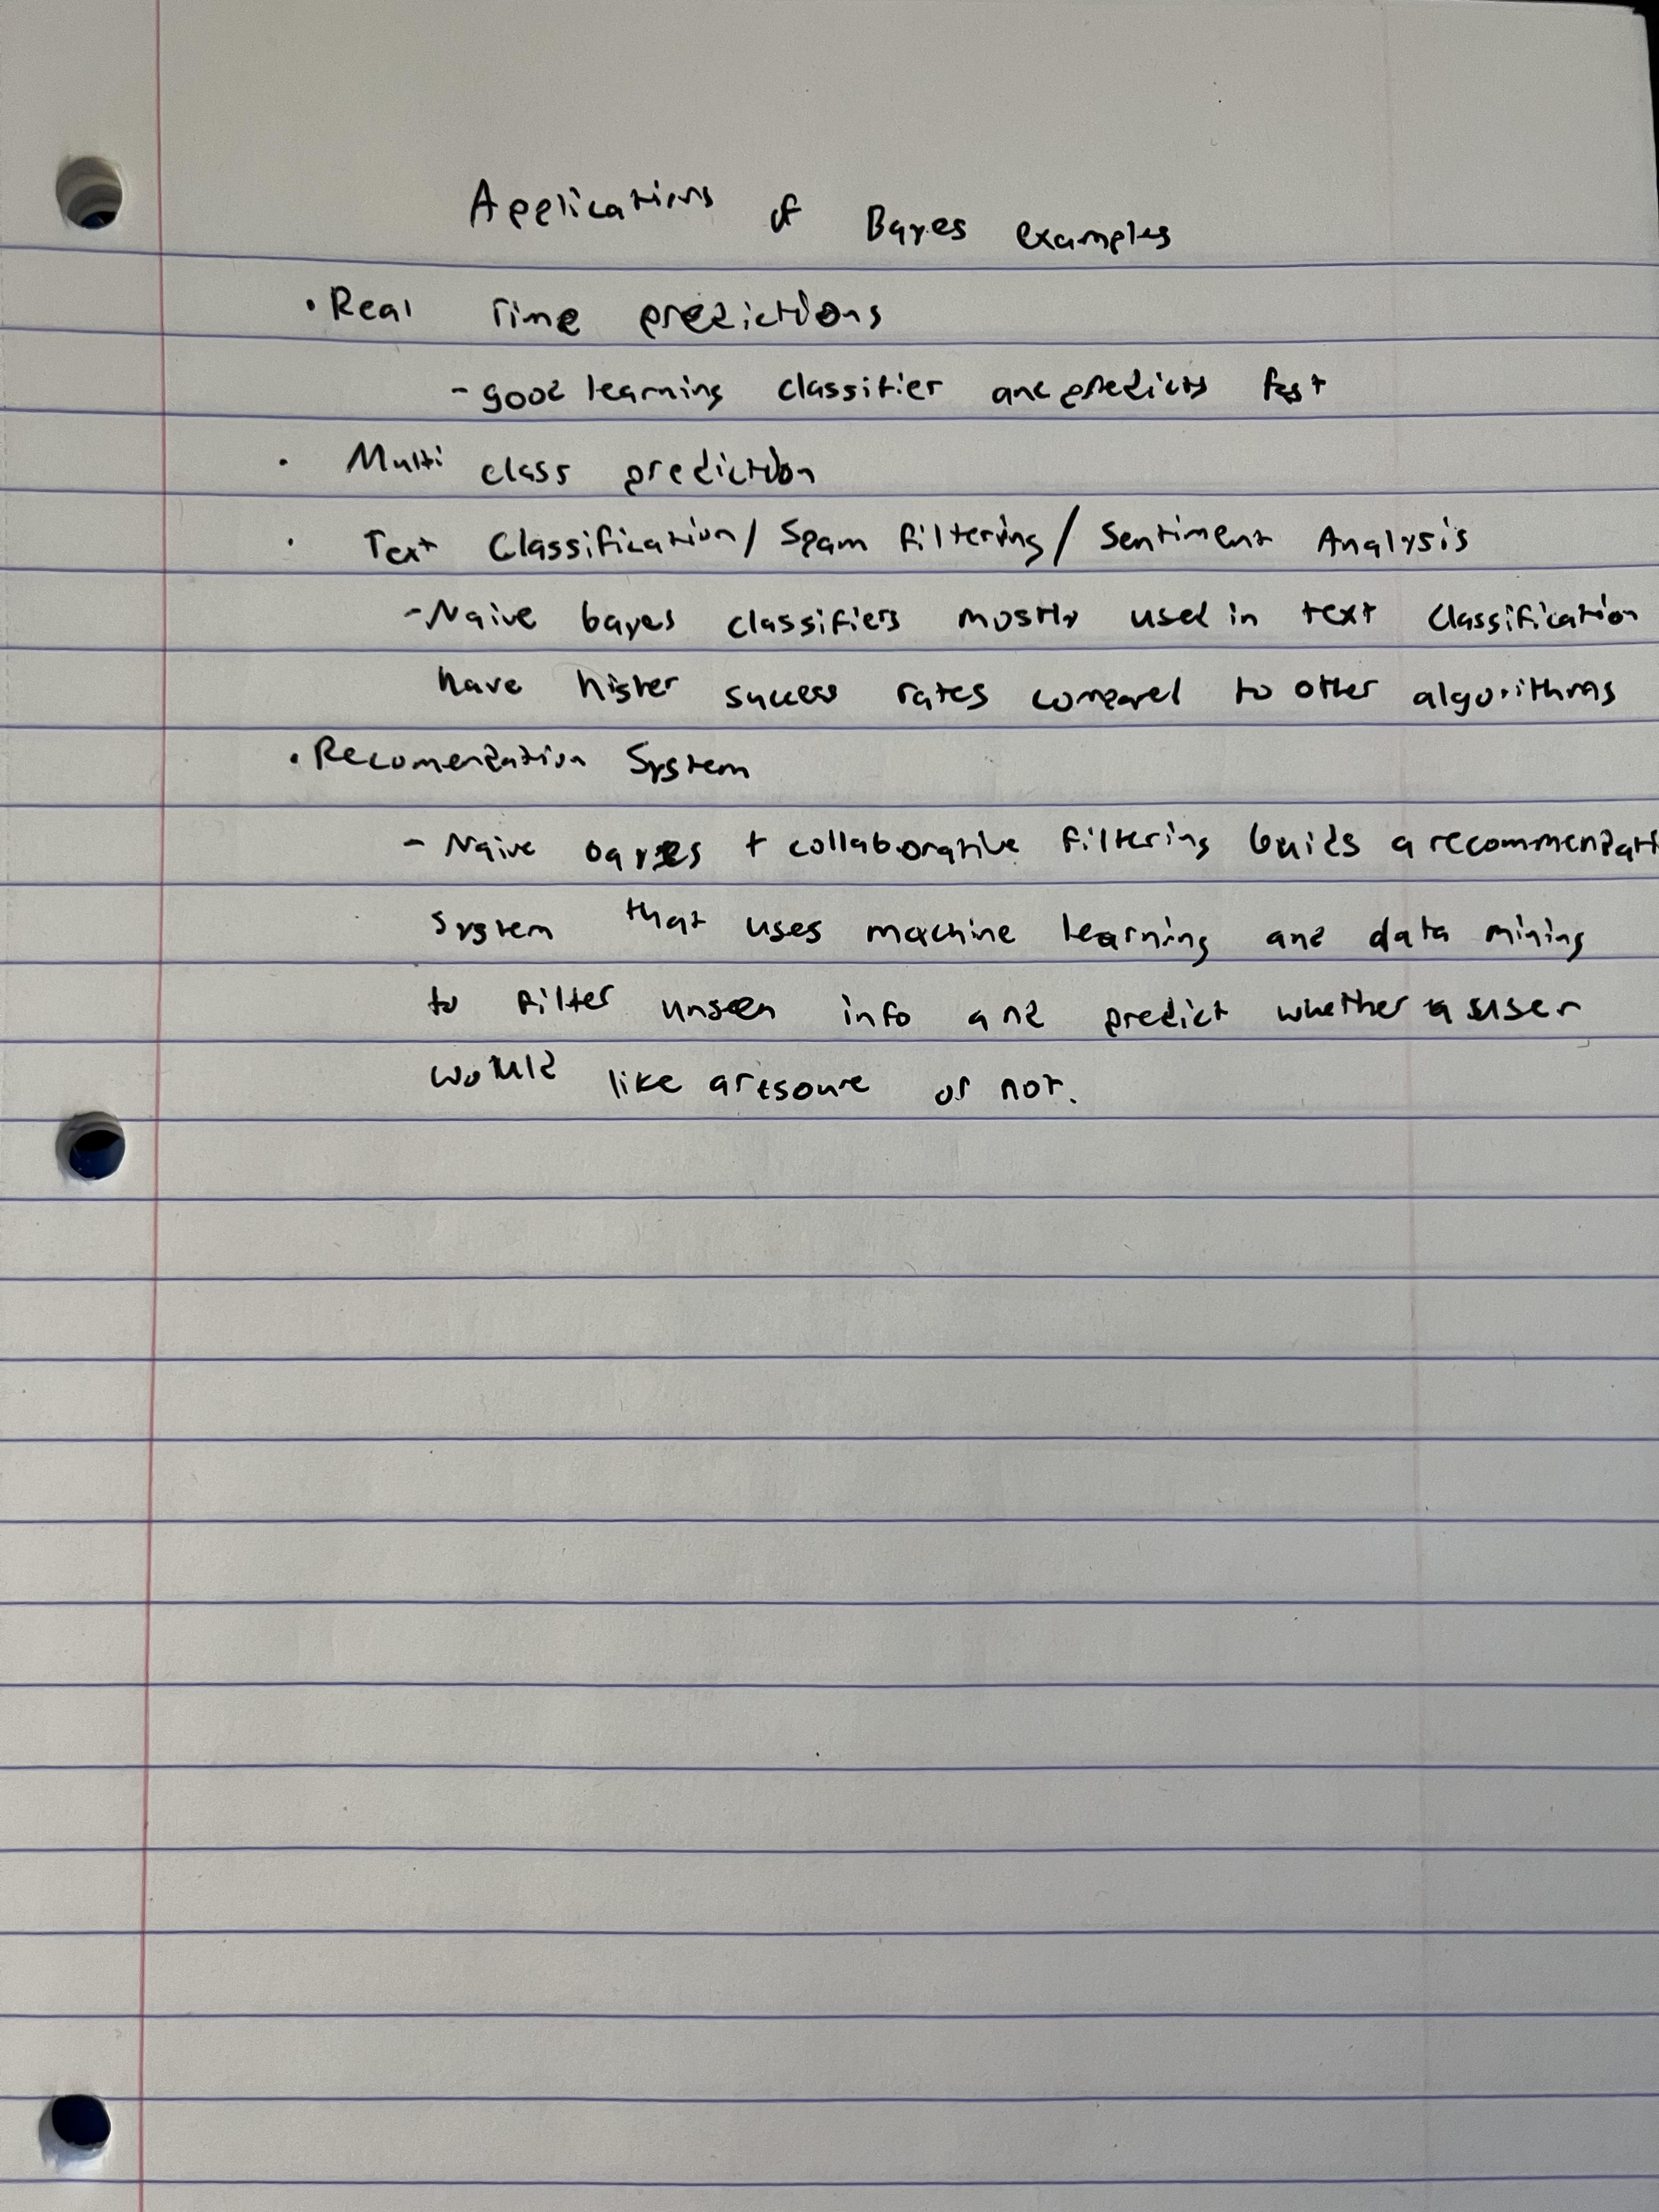 Applications of Bayes examples
• Real Time predictions
- good learning classifier and predicts fast
• Multi class prediction
• Text Classification/ Spam filtering/ Sentiment Analysis
- Naive bayes classifiers mostly used in text classification
have higher success rates compared to other algorithms
• Recomendation System
- Naive bayes + collaborative filtering builds a recommendati
system that uses machine learning and data mining
to filter unseen info and predict whether a user
would like a resource or not.